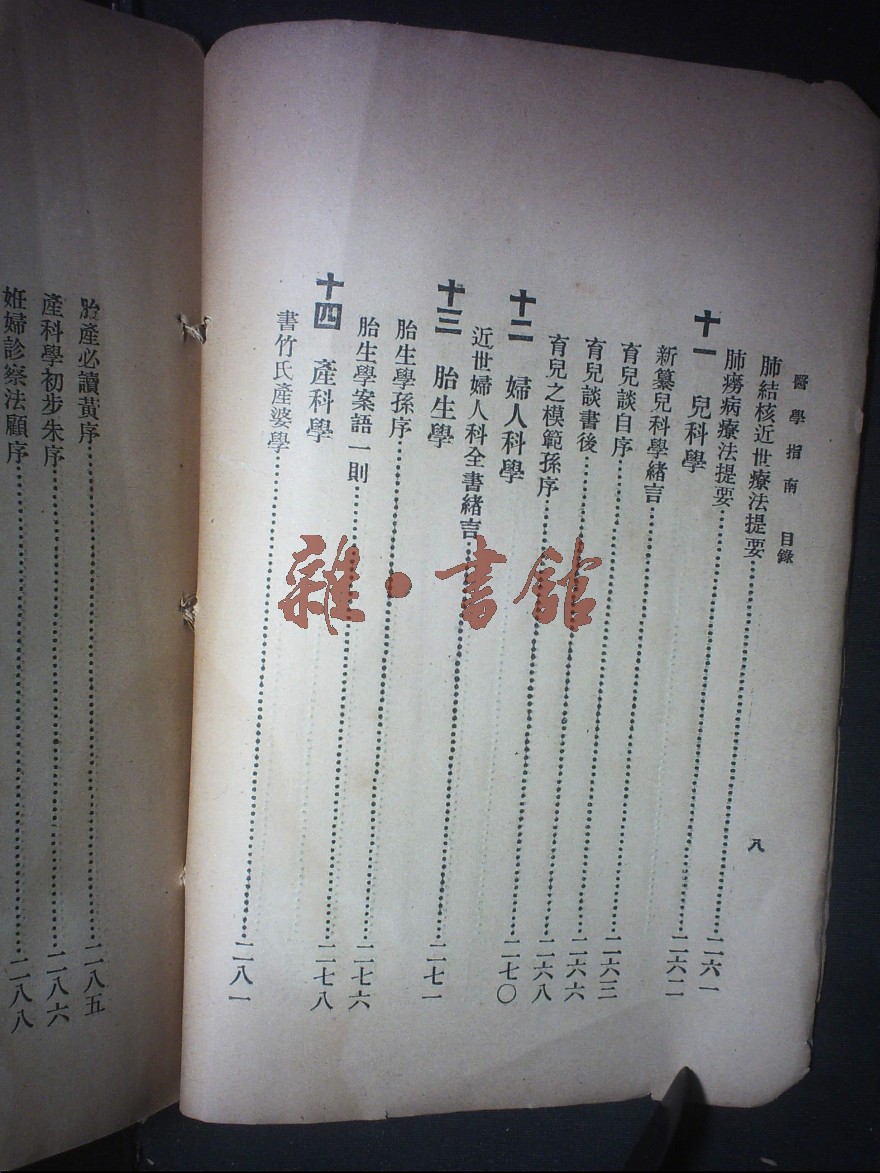 醫學指南 目錄 八
肺結核近世療法提要……二六一
肺癆病療法提要……二六二
十一 兒科學
新纂兒科學緒言……二六三
育兒談自序……二六六
育兒談書後……二六八
育兒之模範孫序……二七〇
十二 婦人科學
近世婦人科全書緒言……二七一
十三 胎生學
胎生學孫序……二七六
胎生學案語一則……二七八
十四 產科學
書竹氏產婆學……二八一
胎產必讀黃序……二八五
產科學初步朱序……二八六
妊婦診察法顧序……二八八
雜·書館